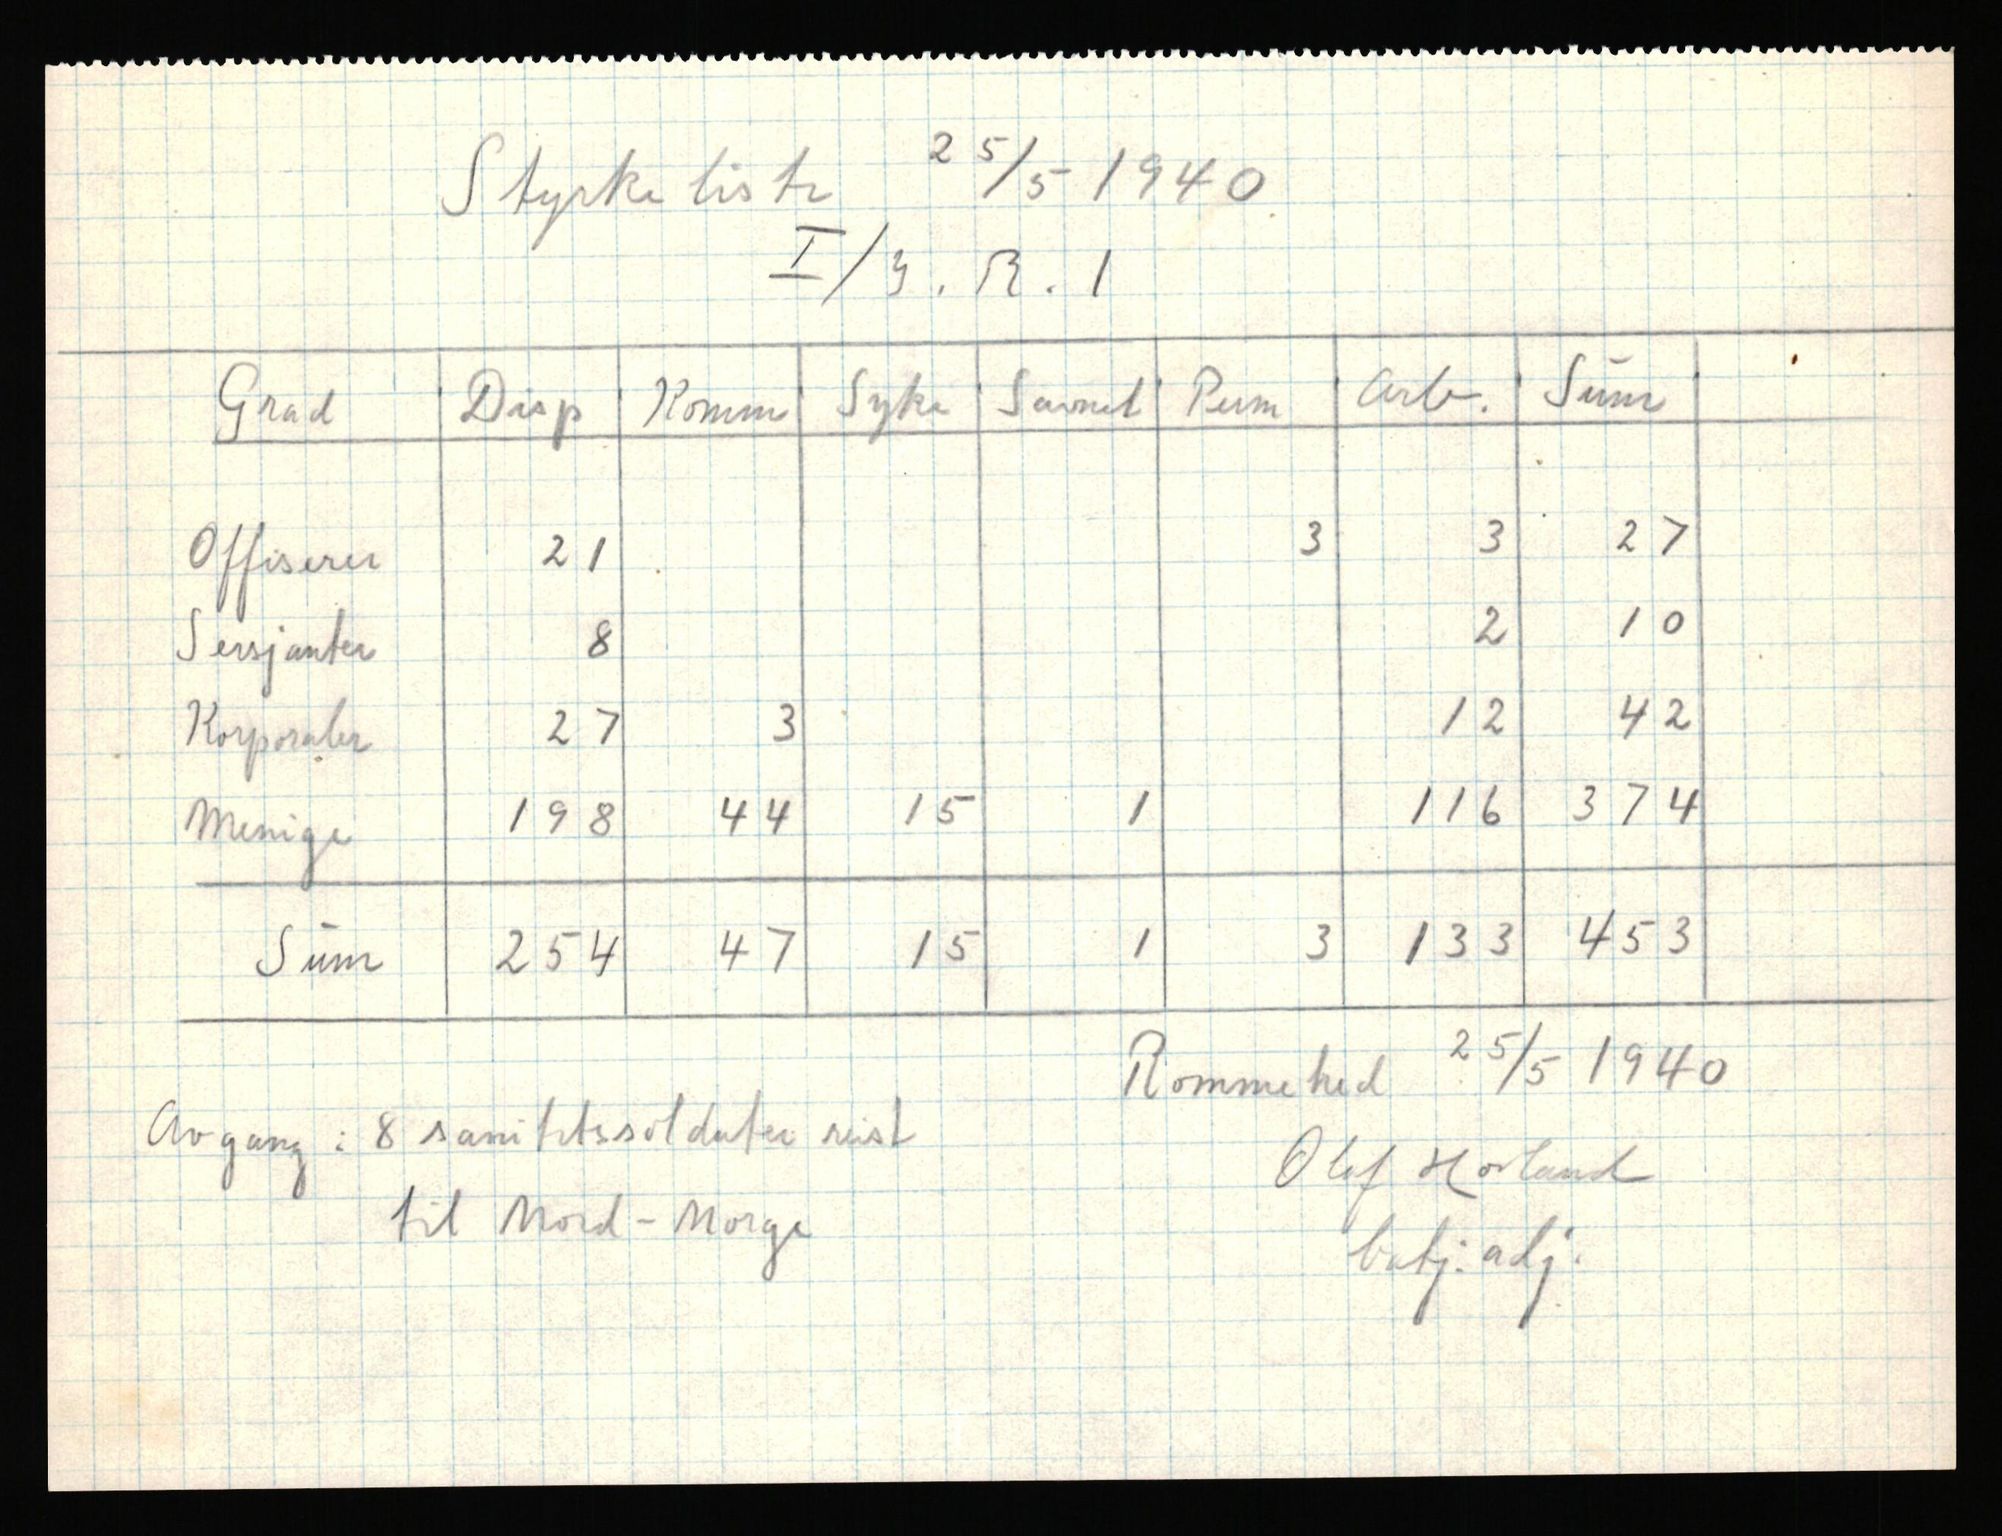 Styrkeliste 25/5 1940
I/J.R.1
Grad Disp Komm Syke Savnet Perm Arb. Sum
Offiserer 21 3 3 27
Sersjanter 8 2 10
Korporaler 27 3 12 42
Menige 198 44 15 1 116 374
Sum 254 47 15 1 3 133 453
Rommehed 25/5 1940
Avgang : 8 sanitetssoldater reist
til Nord-Norge
Olaf Hovland
batj. adj.